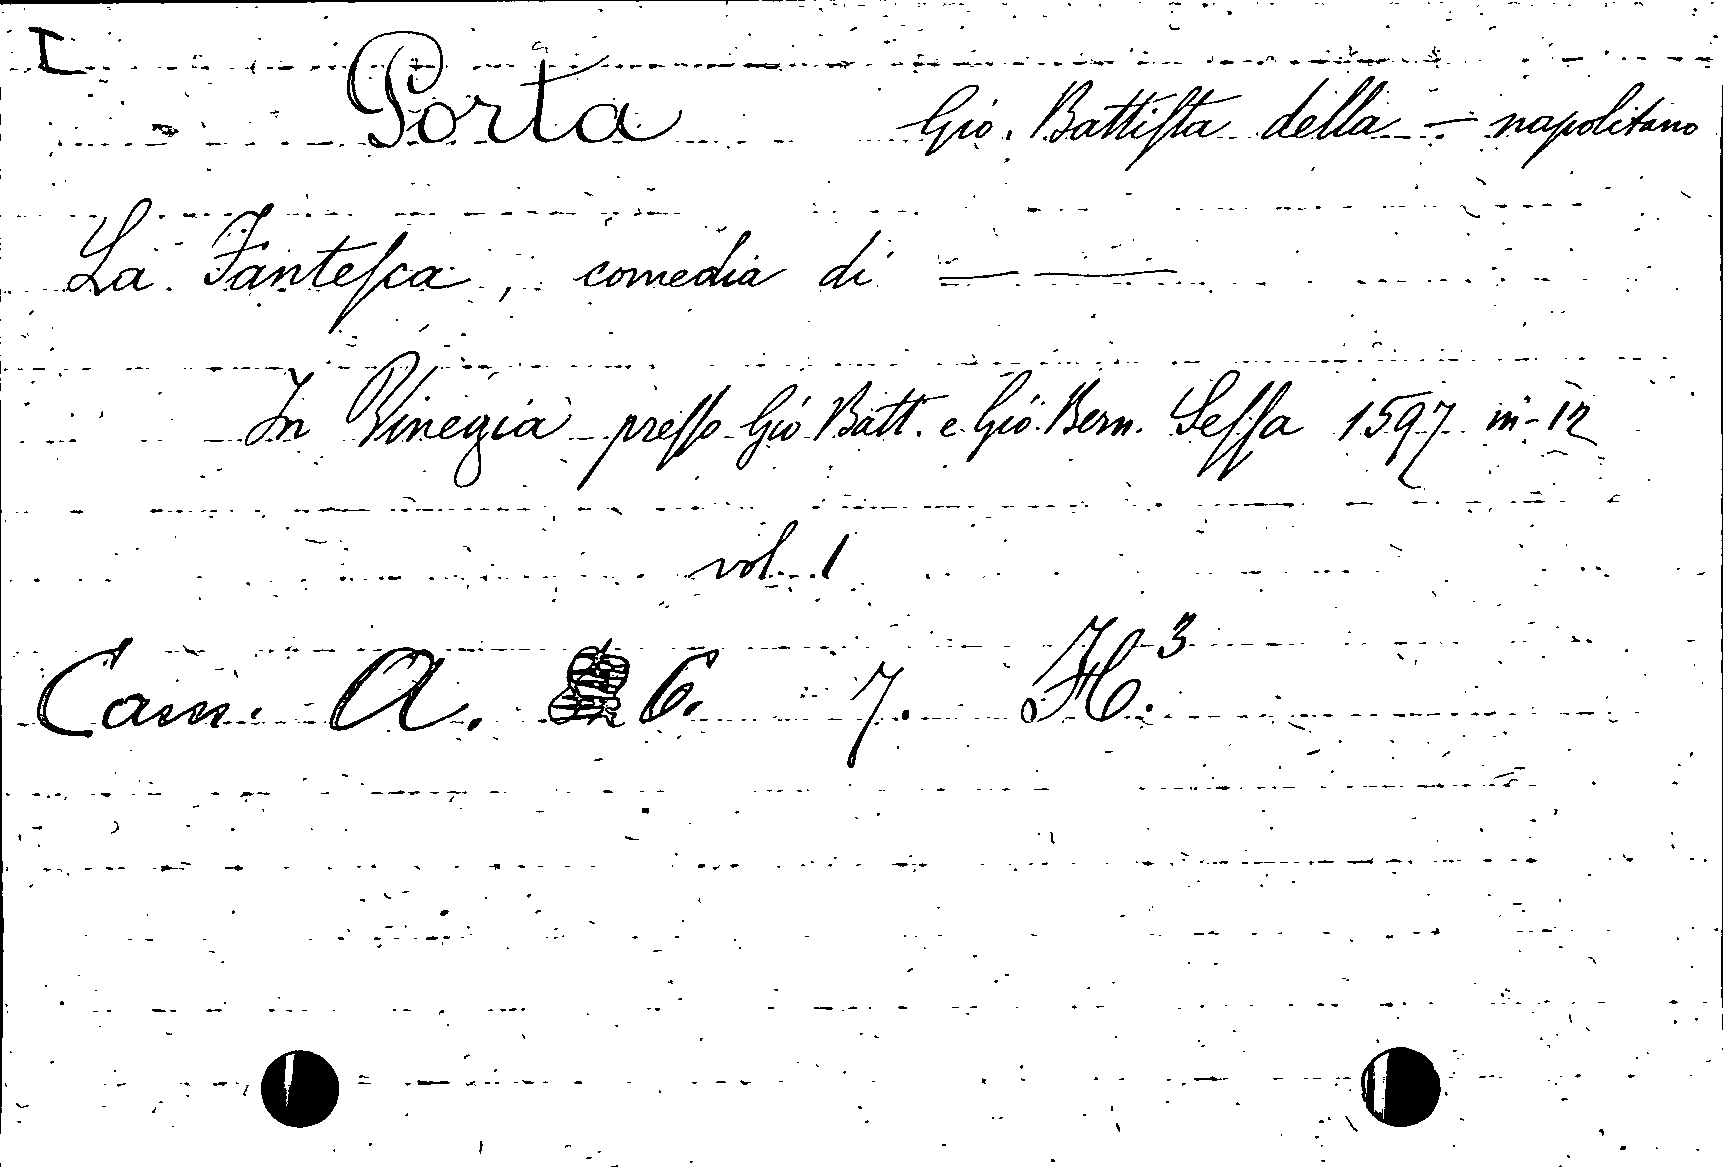 I
Porta Gio. Battiſta della — napolitano
La Fanteſca, comedia di — —
In Vinegia preſſo Gio Batt. e Gio. Bern. Seſſa 1597 in-12
vol. 1
Cam. A. 6. 7. H.3